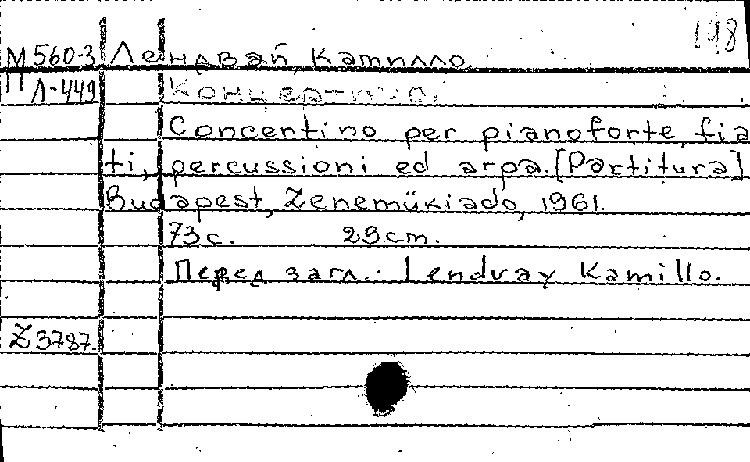 198
М560-3 Лендвай, Камилло
Л-449 Концертино.
Concertino per pianoforte, fia
ti, percussioni ed arpa. [Partitura]
Budapest, Zeneműkiadó, 1961.
73 с. 29 cm.
Перед загл.: Lendvay Kamillo.
Z 3787.